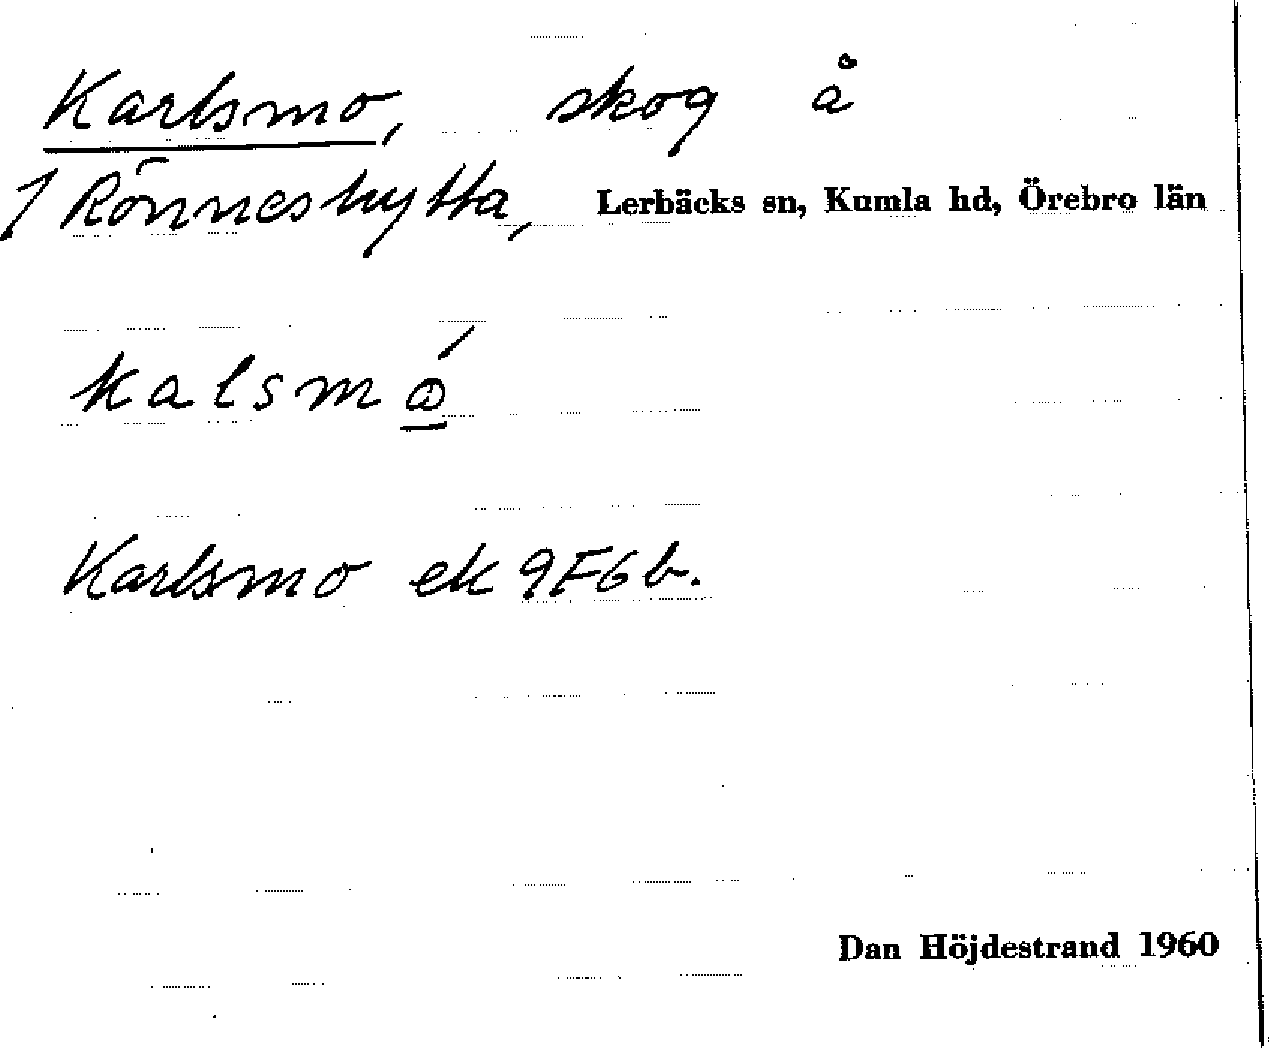 Karlsmo, skog å
1 Rönneshytta, Lerbäcks sn, Kumla hd, Örebro län
kalsmó̲
Karlsmo ek 9F6b.
Dan Höjdestrand 1960